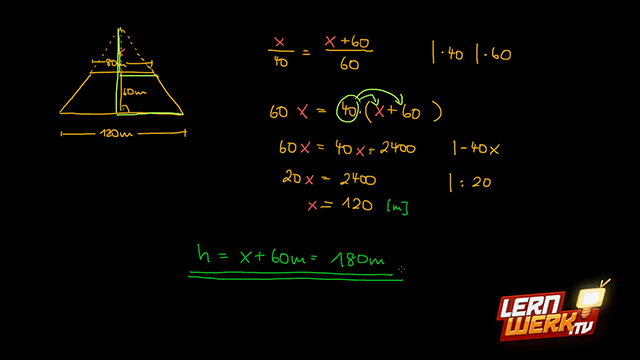 x/40 = x+60/60 |·40 |·60
80m
60m
60x = 40·(x+60)
120m
60x = 40x+2400 |-40x
20x = 2400 |:20
x = 120 [m]
h = x+60m = 180m
LERN
WERK.TV